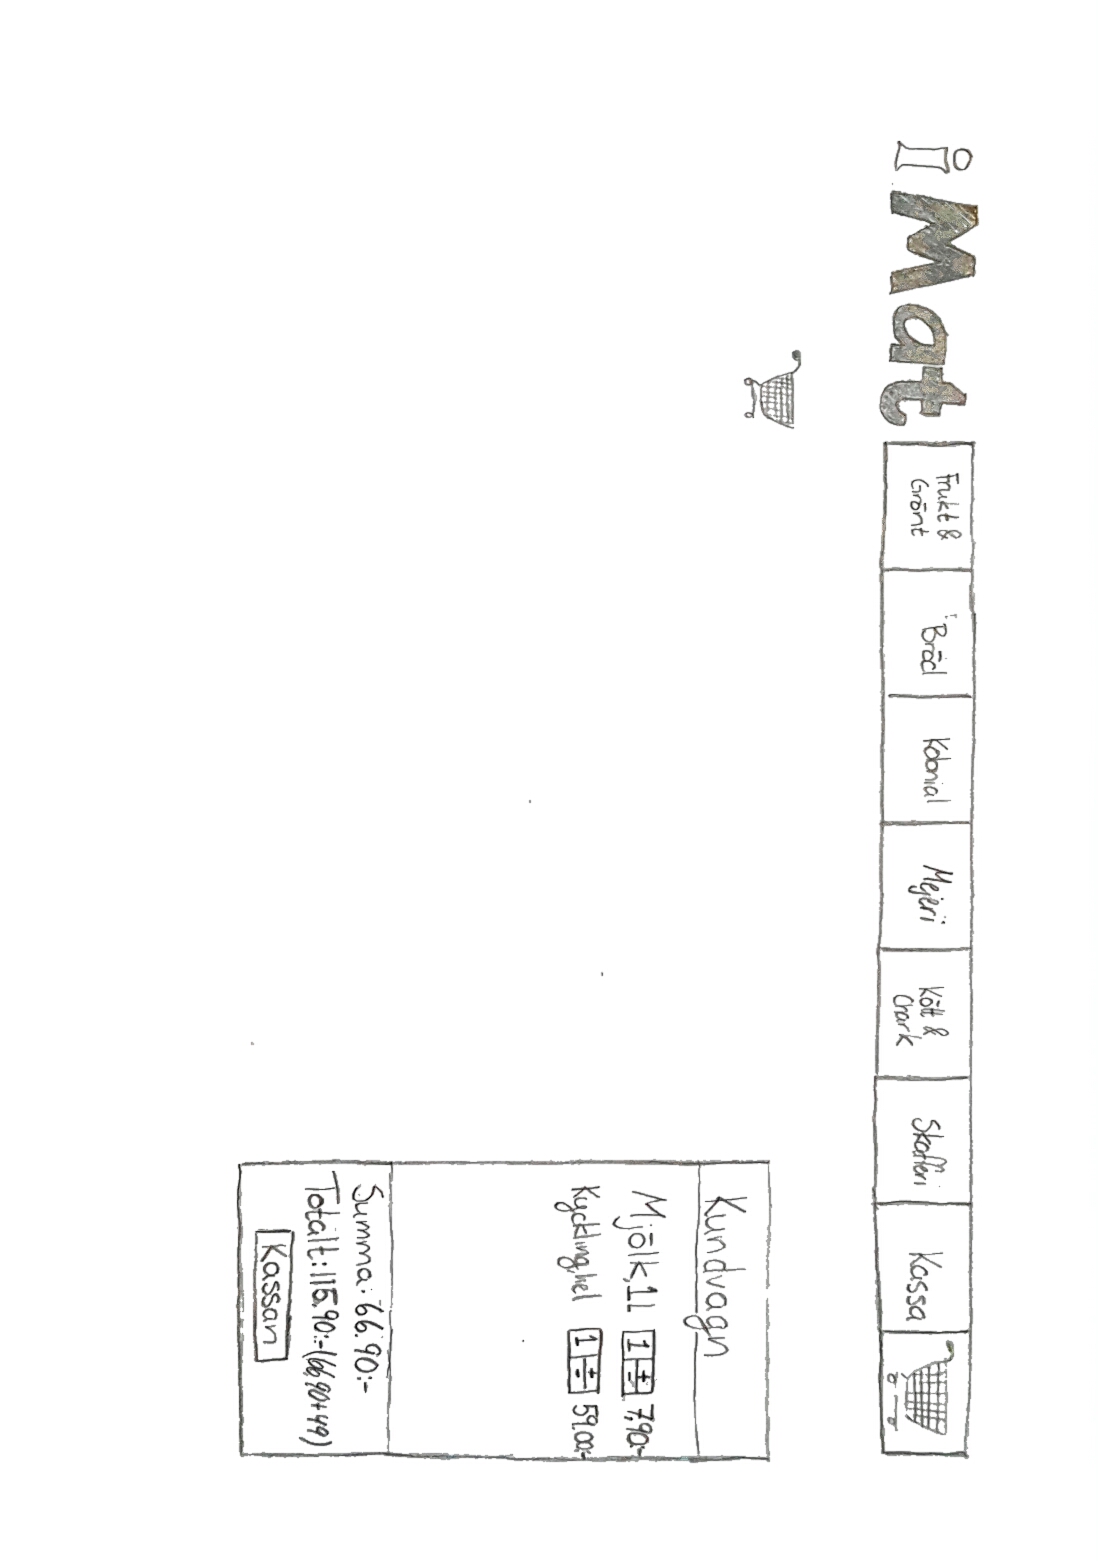 iMat
Frukt &
Grönt
Bröd
Kolonial
Mejeri
Kött &
Chark
Skafferi
Kassa
Kundvagn
Mjölk, 1l 1 + - 7,90:-
Kyckling, hel 1 + - 59.00:-
Summa: 66.90:-
Totalt: 115.90:- (66.90+49)
Kassan